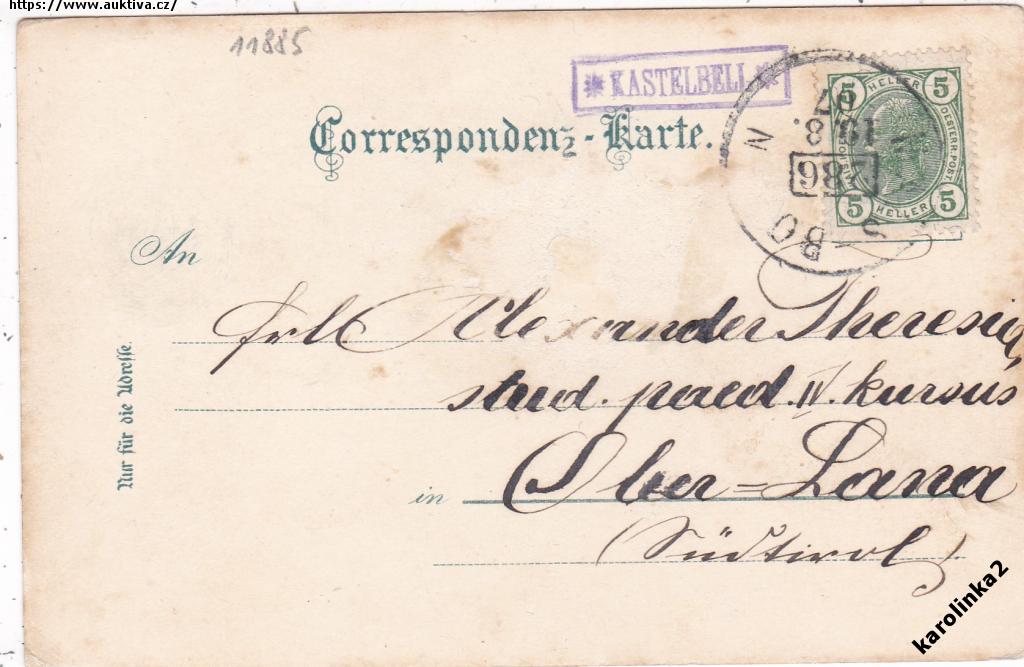 https://www.auktiva.cz/
11885
* KASTELBELL *
Correspondenz-Karte.
5 HELLER 5
OESTERR. POST
5 HELLER 5
BO
N
286
An
Frl Alexander Theresia,
stud. paed. IV. kursus
in Ober=Lana
(Südtirol)
Nur für die Adresse.
karolinka2